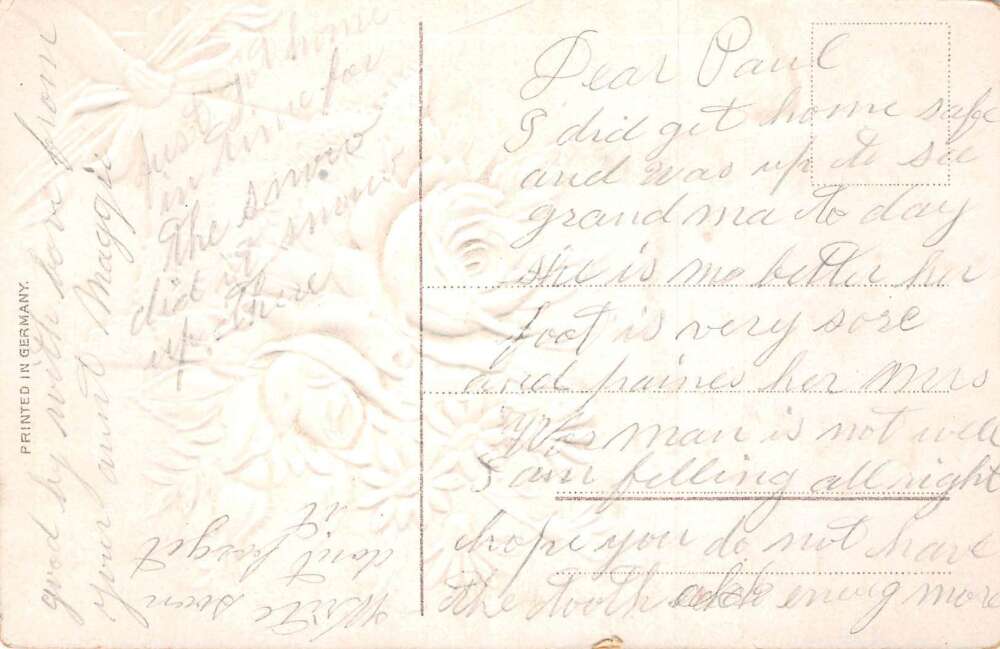 Dear Paul
I did get home safe
and was up to see
grand ma to day
she is no better her
foot is very sore
and paines her Mrs
man is not well
I am felling all right
hope you do not have
the tooth eneug more
just got home
in time for
the snow
did it snow
up there
Write soon
dont forget
it
good by with love from
your aunt Maggie
PRINTED IN GERMANY.